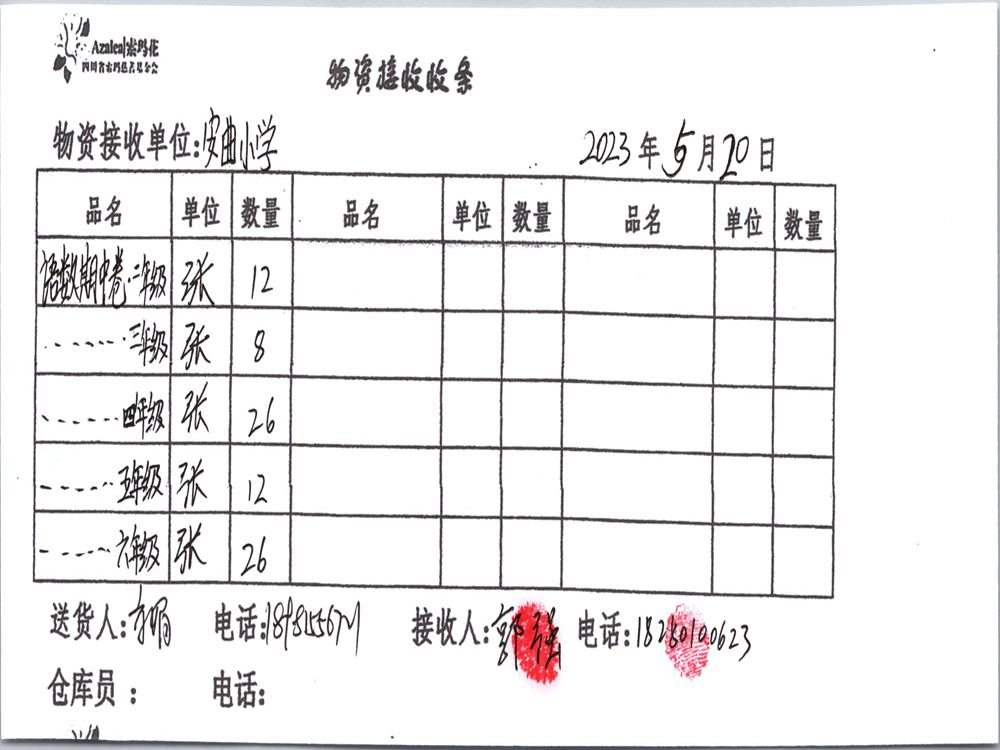 Azalea|索玛花
四川省索玛慈善基金会
物资接收收条
物资接收单位:安曲小学 2023年5月20日
品名 单位 数量 品名 单位 数量 品名 单位 数量
语数期中卷·二年级 张 12
.......三年级 张 8
.......四年级 张 26
.......五年级 张 12
.......六年级 张 26
送货人: 电话: 接收人:郭强 电话:18280100623
仓库员 : 电话: